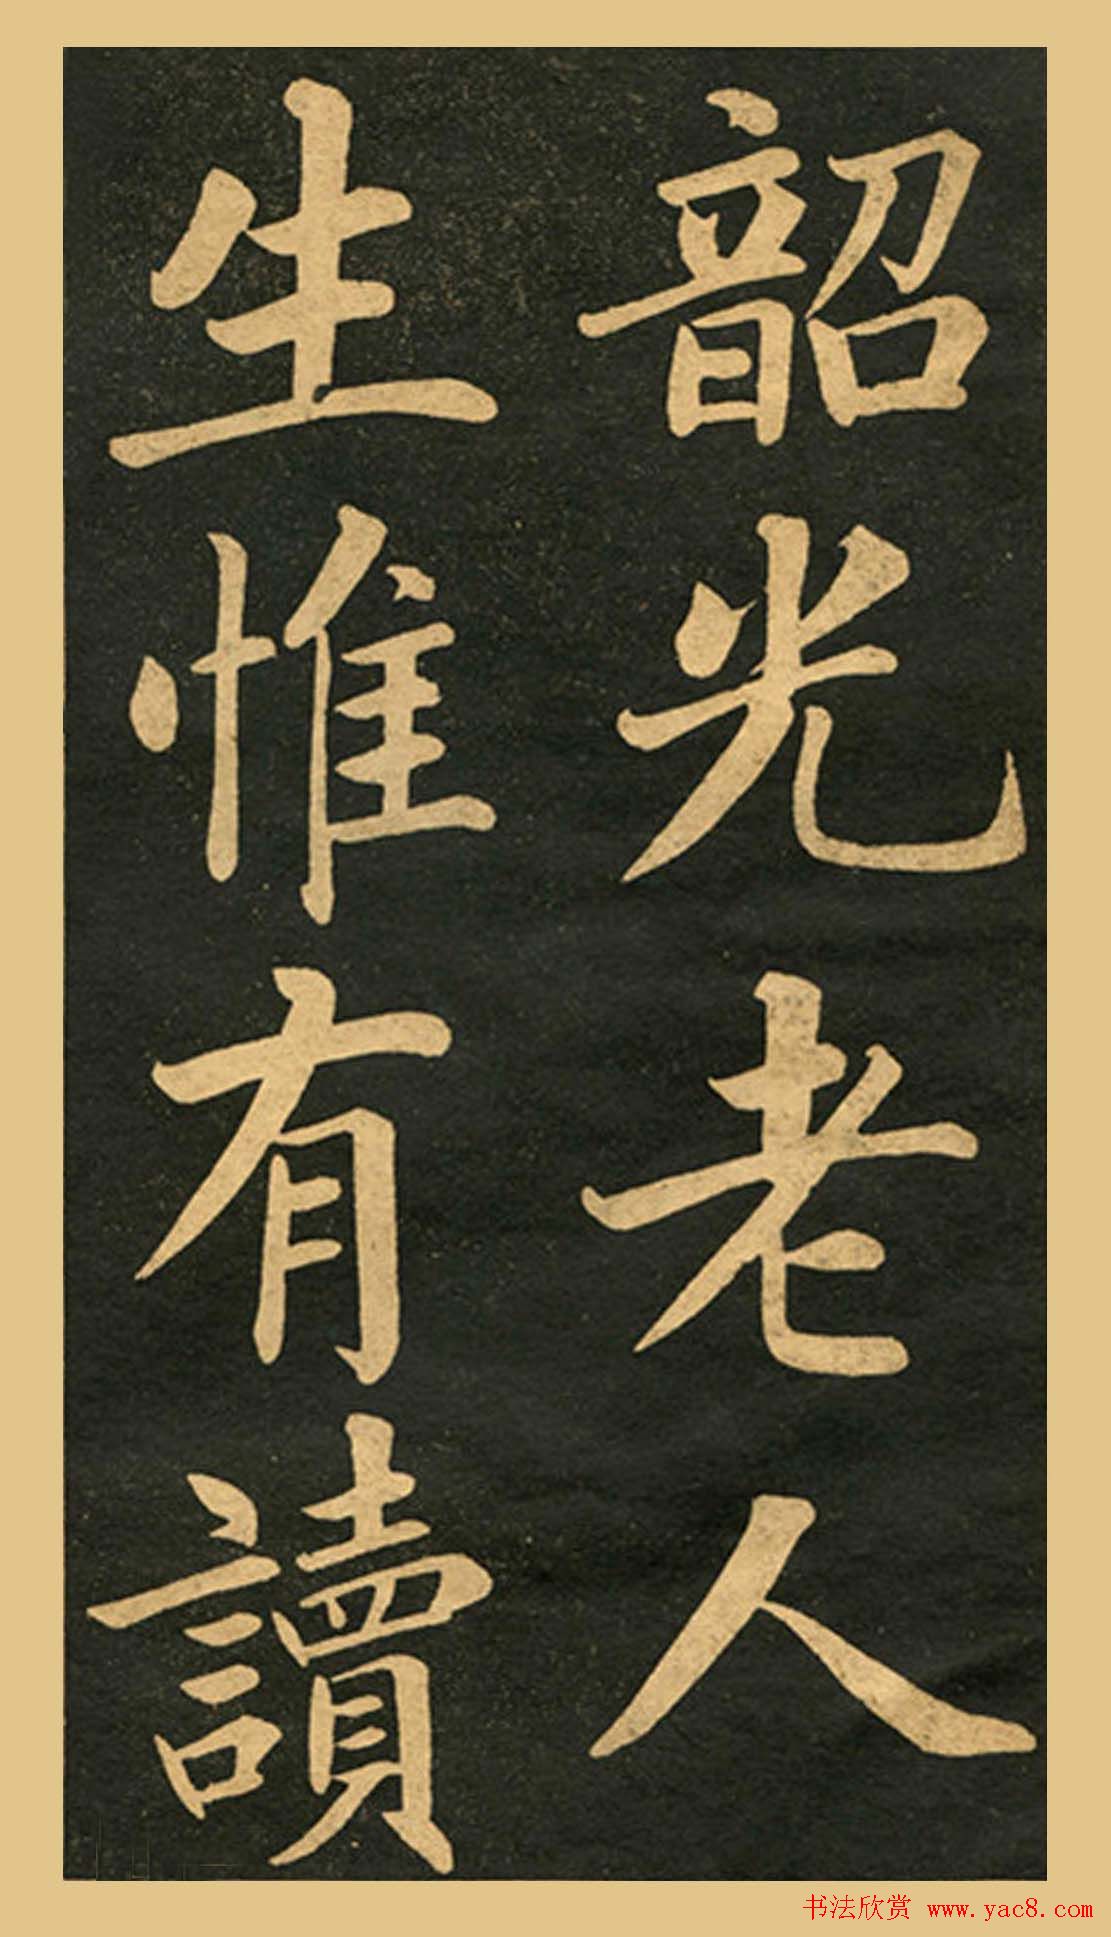 韶光老人
生惟有讀
书法欣赏 www.yac8.com